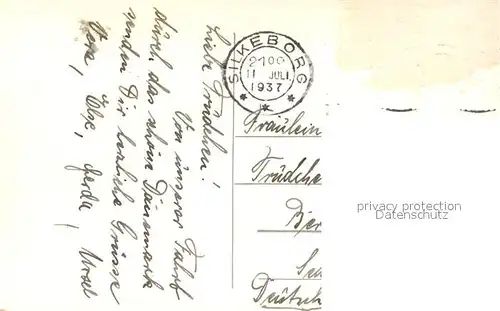 Liebe Trudchen!
Von unserer Fahrt
durch das schöne Dänemark
senden Dir herzliche Grüsse
Else, Gerda,
SILKEBORG
2100
11 JULI
1937
Fräulein
Trüdche
Ber
Deutsch
privacy protection
Datenschutz